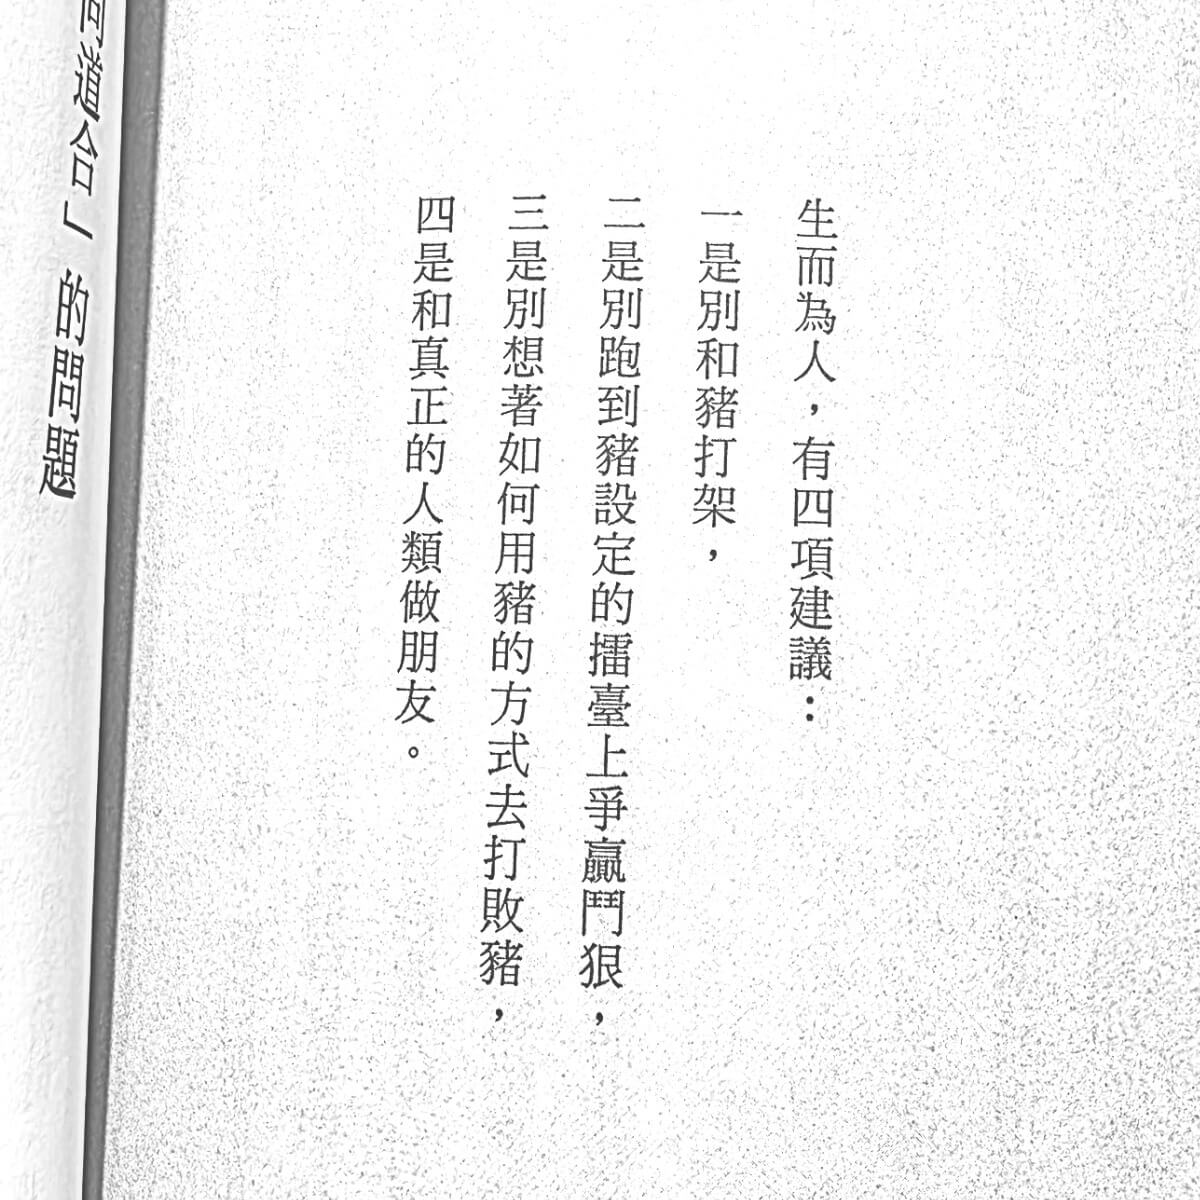 生而為人，有四項建議：
一是別和豬打架，
二是別跑到豬設定的擂臺上爭贏鬥狠，
三是別想著如何用豬的方式去打敗豬，
四是和真正的人類做朋友。
道合」的問題